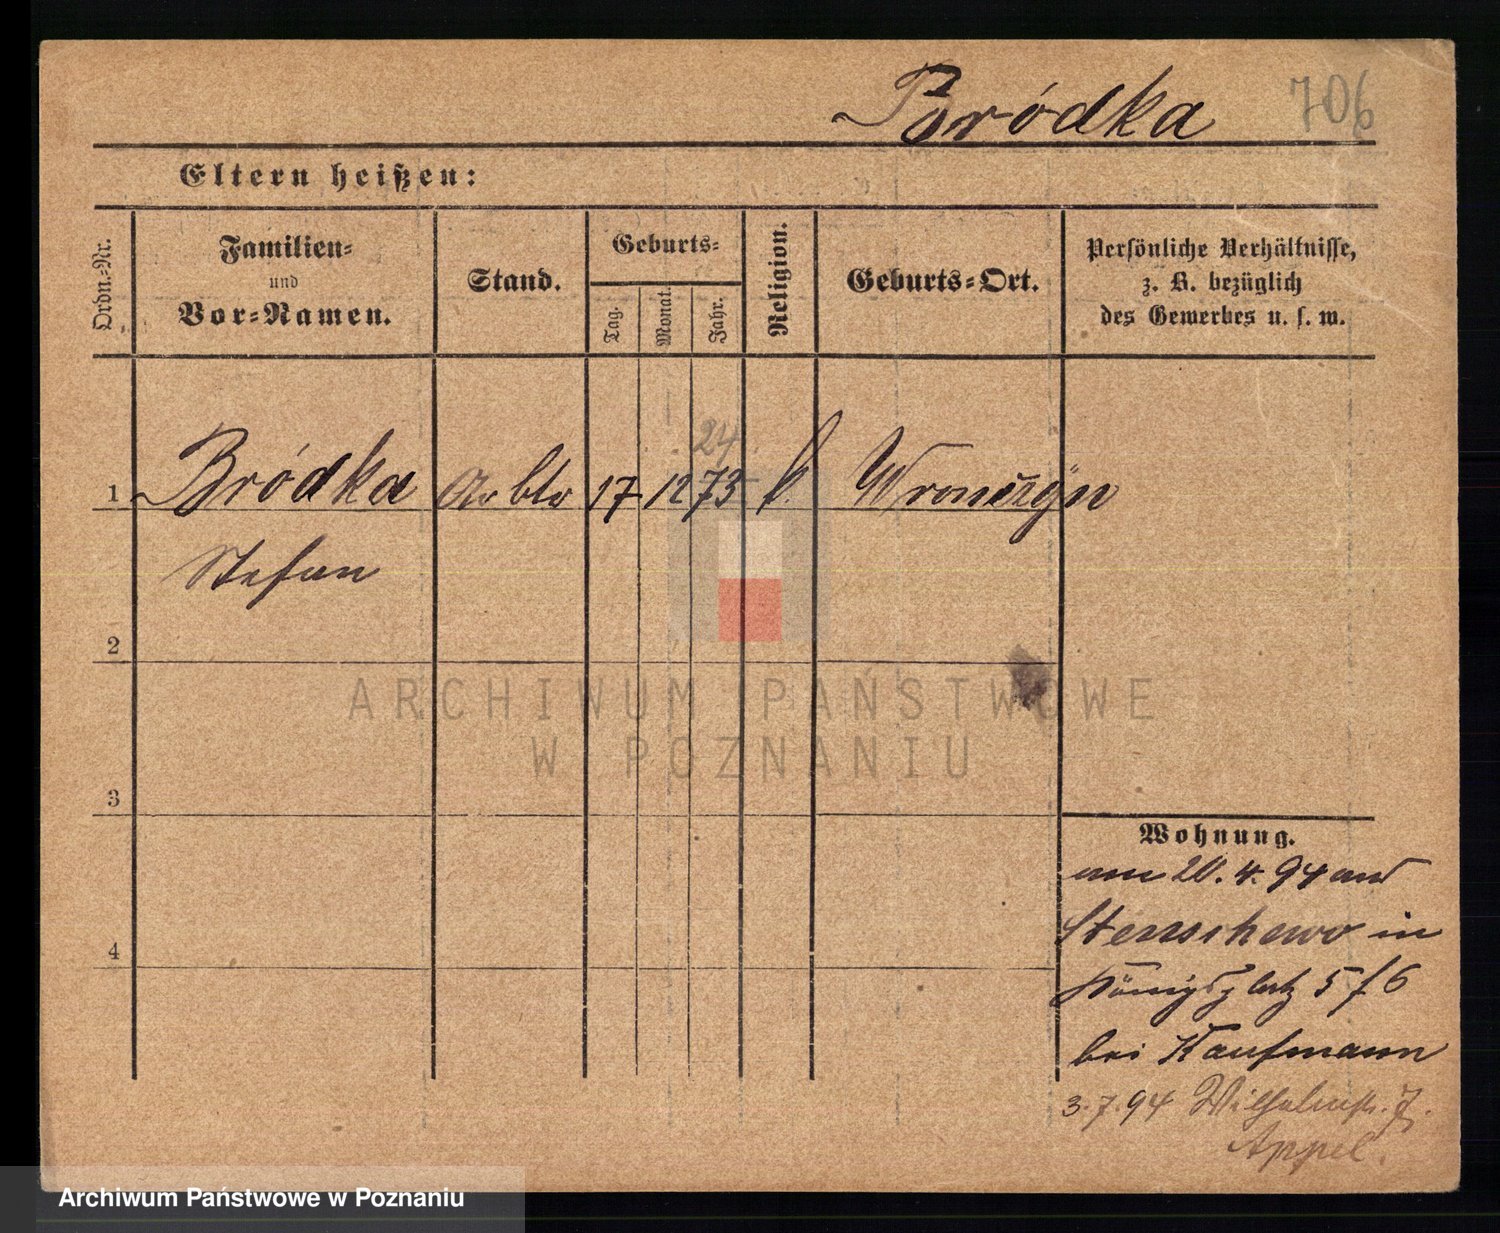 Bródka 706
Eltern heißen:
Ordn.-Nr.
Familien-
und
Vor-Namen.
Stand.
Geburts-
Tag.
Monat.
Jahr.
Religion.
Geburts-Ort.
Persönliche Verhältnisse,
z. B. bezüglich
des Gewerbes u. s. w.
24
1 Bródka Arbtr 17 12 73 k. Wronczyn
Stefan
2
3
4
Wohnung.
am 20. 4. 94 aus
Stenschewo in
Königsplatz 5/6
bei Kaufmann
3. 7. 94 Wilhelmstr. 7.
Appel.
ARCHIWUM PAŃSTWOWE
W POZNANIU
Archiwum Państwowe w Poznaniu